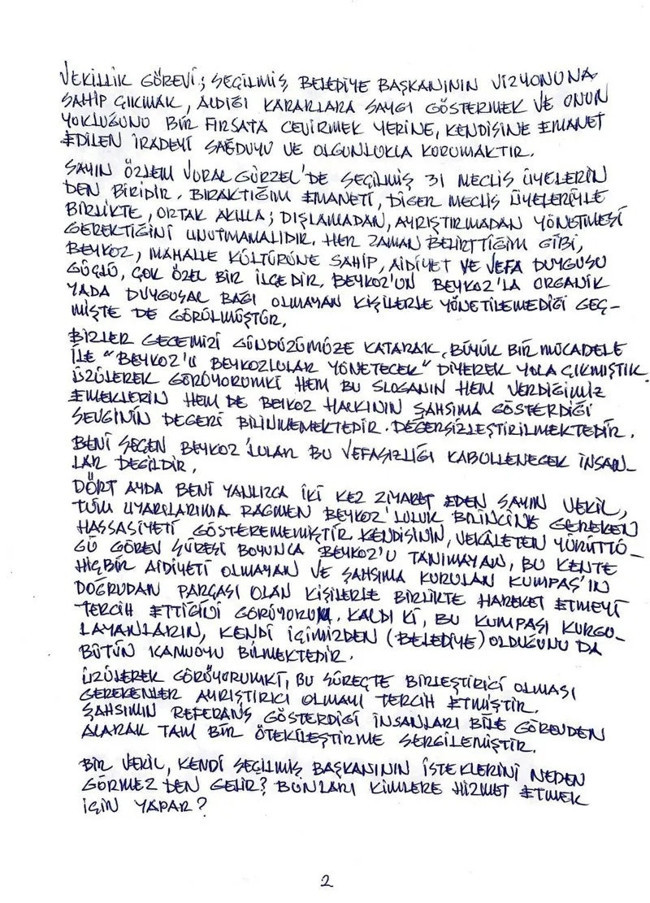 VEKİLLİK GÖREVİ; SEÇİLMİŞ BELEDİYE BAŞKANININ VİZYONUNA
SAHİP ÇIKMAK, ALDIĞI KARARLARA SAYGI GÖSTERMEK VE ONUN
YOKLUĞUNU BİR FIRSATA ÇEVİRMEK YERİNE, KENDİSİNE EMANET
EDİLEN İRADEYİ SAĞDUYU VE OLGUNLUKLA KORUMAKTIR.
SAYIN ÖZLEM VURAL GÜRZEL'DE SEÇİLMİŞ 31 MECLİS ÜYELERİN
DEN BİRİDİR. BIRAKTIĞIM EMANETİ, DİĞER MECLİS ÜYELERİYLE
BİRLİKTE, ORTAK AKILLA; DIŞLAMADAN, AYRIŞTIRMADAN YÖNETMESİ
GEREKTİĞİNİ UNUTMAMALIDIR. HER ZAMAN BELİRTTİĞİM GİBİ,
BEYKOZ, MAHALLE KÜLTÜRÜNE SAHİP, AİDİYET VE VEFA DUYGUSU
GÜÇLÜ, ÇOK ÖZEL BİR İLÇEDİR. BEYKOZ'UN BEYKOZ'LA ORGANİK
YADA DUYGUSAL BAĞI OLMAYAN KİŞİLERLE YÖNETİLEMEDİĞİ GEÇ-
MİŞTE DE GÖRÜLMÜŞTÜR.
BİZLER GECEMİZİ GÜNDÜZÜMÜZE KATARAK, BÜYÜK BİR MÜCADELE
İLE "BEYKOZ'U BEYKOZLULAR YÖNETECEK" DİYEREK YOLA ÇIKMIŞTIK.
ÜZÜLEREK GÖRÜYORUMKİ HEM BU SLOGANIN HEM VERDİĞİMİZ
EMEKLERİN HEM DE BEYKOZ HALKININ ŞAHSIMA GÖSTERDİĞİ
SEVGİNİN DEĞERİ BİLİNMEMEKTEDİR. DEĞERSİZLEŞTİRİLMEKTEDİR.
BENİ SEÇEN BEYKOZ'LULAR BU VEFASIZLIĞI KABULLENECEK İNSAN-
LAR DEĞİLDİR.
DÖRT AYDA BENİ YALNIZCA İKİ KEZ ZİYARET EDEN SAYIN VEKİL,
TÜM UYARILARIMA RAĞMEN BEYKOZ'LULUK BİLİNCİNE GEREKEN
HASSASİYETİ GÖSTEREMEMİŞTİR. KENDİSİNİN, VEKÂLETEN YÜRÜTTÜ-
ĞÜ GÖREV SÜRESİ BOYUNCA BEYKOZ'U TANIMAYAN, BU KENTE
HİÇBİR AİDİYETİ OLMAYAN VE ŞAHSIMA KURULAN KUMPAS'IN
DOĞRUDAN PARÇASI OLAN KİŞİLERLE BİRLİKTE HAREKET ETMEYİ
TERCİH ETTİĞİNİ GÖRÜYORUM. KALDI Kİ, BU KUMPASI KURGU-
LAYANLARIN, KENDİ İÇİMİZDEN (BELEDİYE) OLDUĞUNU DA
BÜTÜN KAMUOYU BİLMEKTEDİR.
ÜZÜLEREK GÖRÜYORUMKİ, BU SÜREÇTE BİRLEŞTİRİCİ OLMASI
GEREKENLER AYRIŞTIRICI OLMAYI TERCİH ETMİŞTİR.
ŞAHSIMIN REFERANS GÖSTERDİĞİ İNSANLARI BİLE GÖREVDEN
ALARAK TAM BİR ÖTEKİLEŞTİRME SERGİLEMİŞTİR.
BİR VEKİL, KENDİ SEÇİLMİŞ BAŞKANININ İSTEKLERİNİ NEDEN
GÖRMEZDEN GELİR? BUNLARI KİMLERE HİZMET ETMEK
İÇİN YAPAR?
2